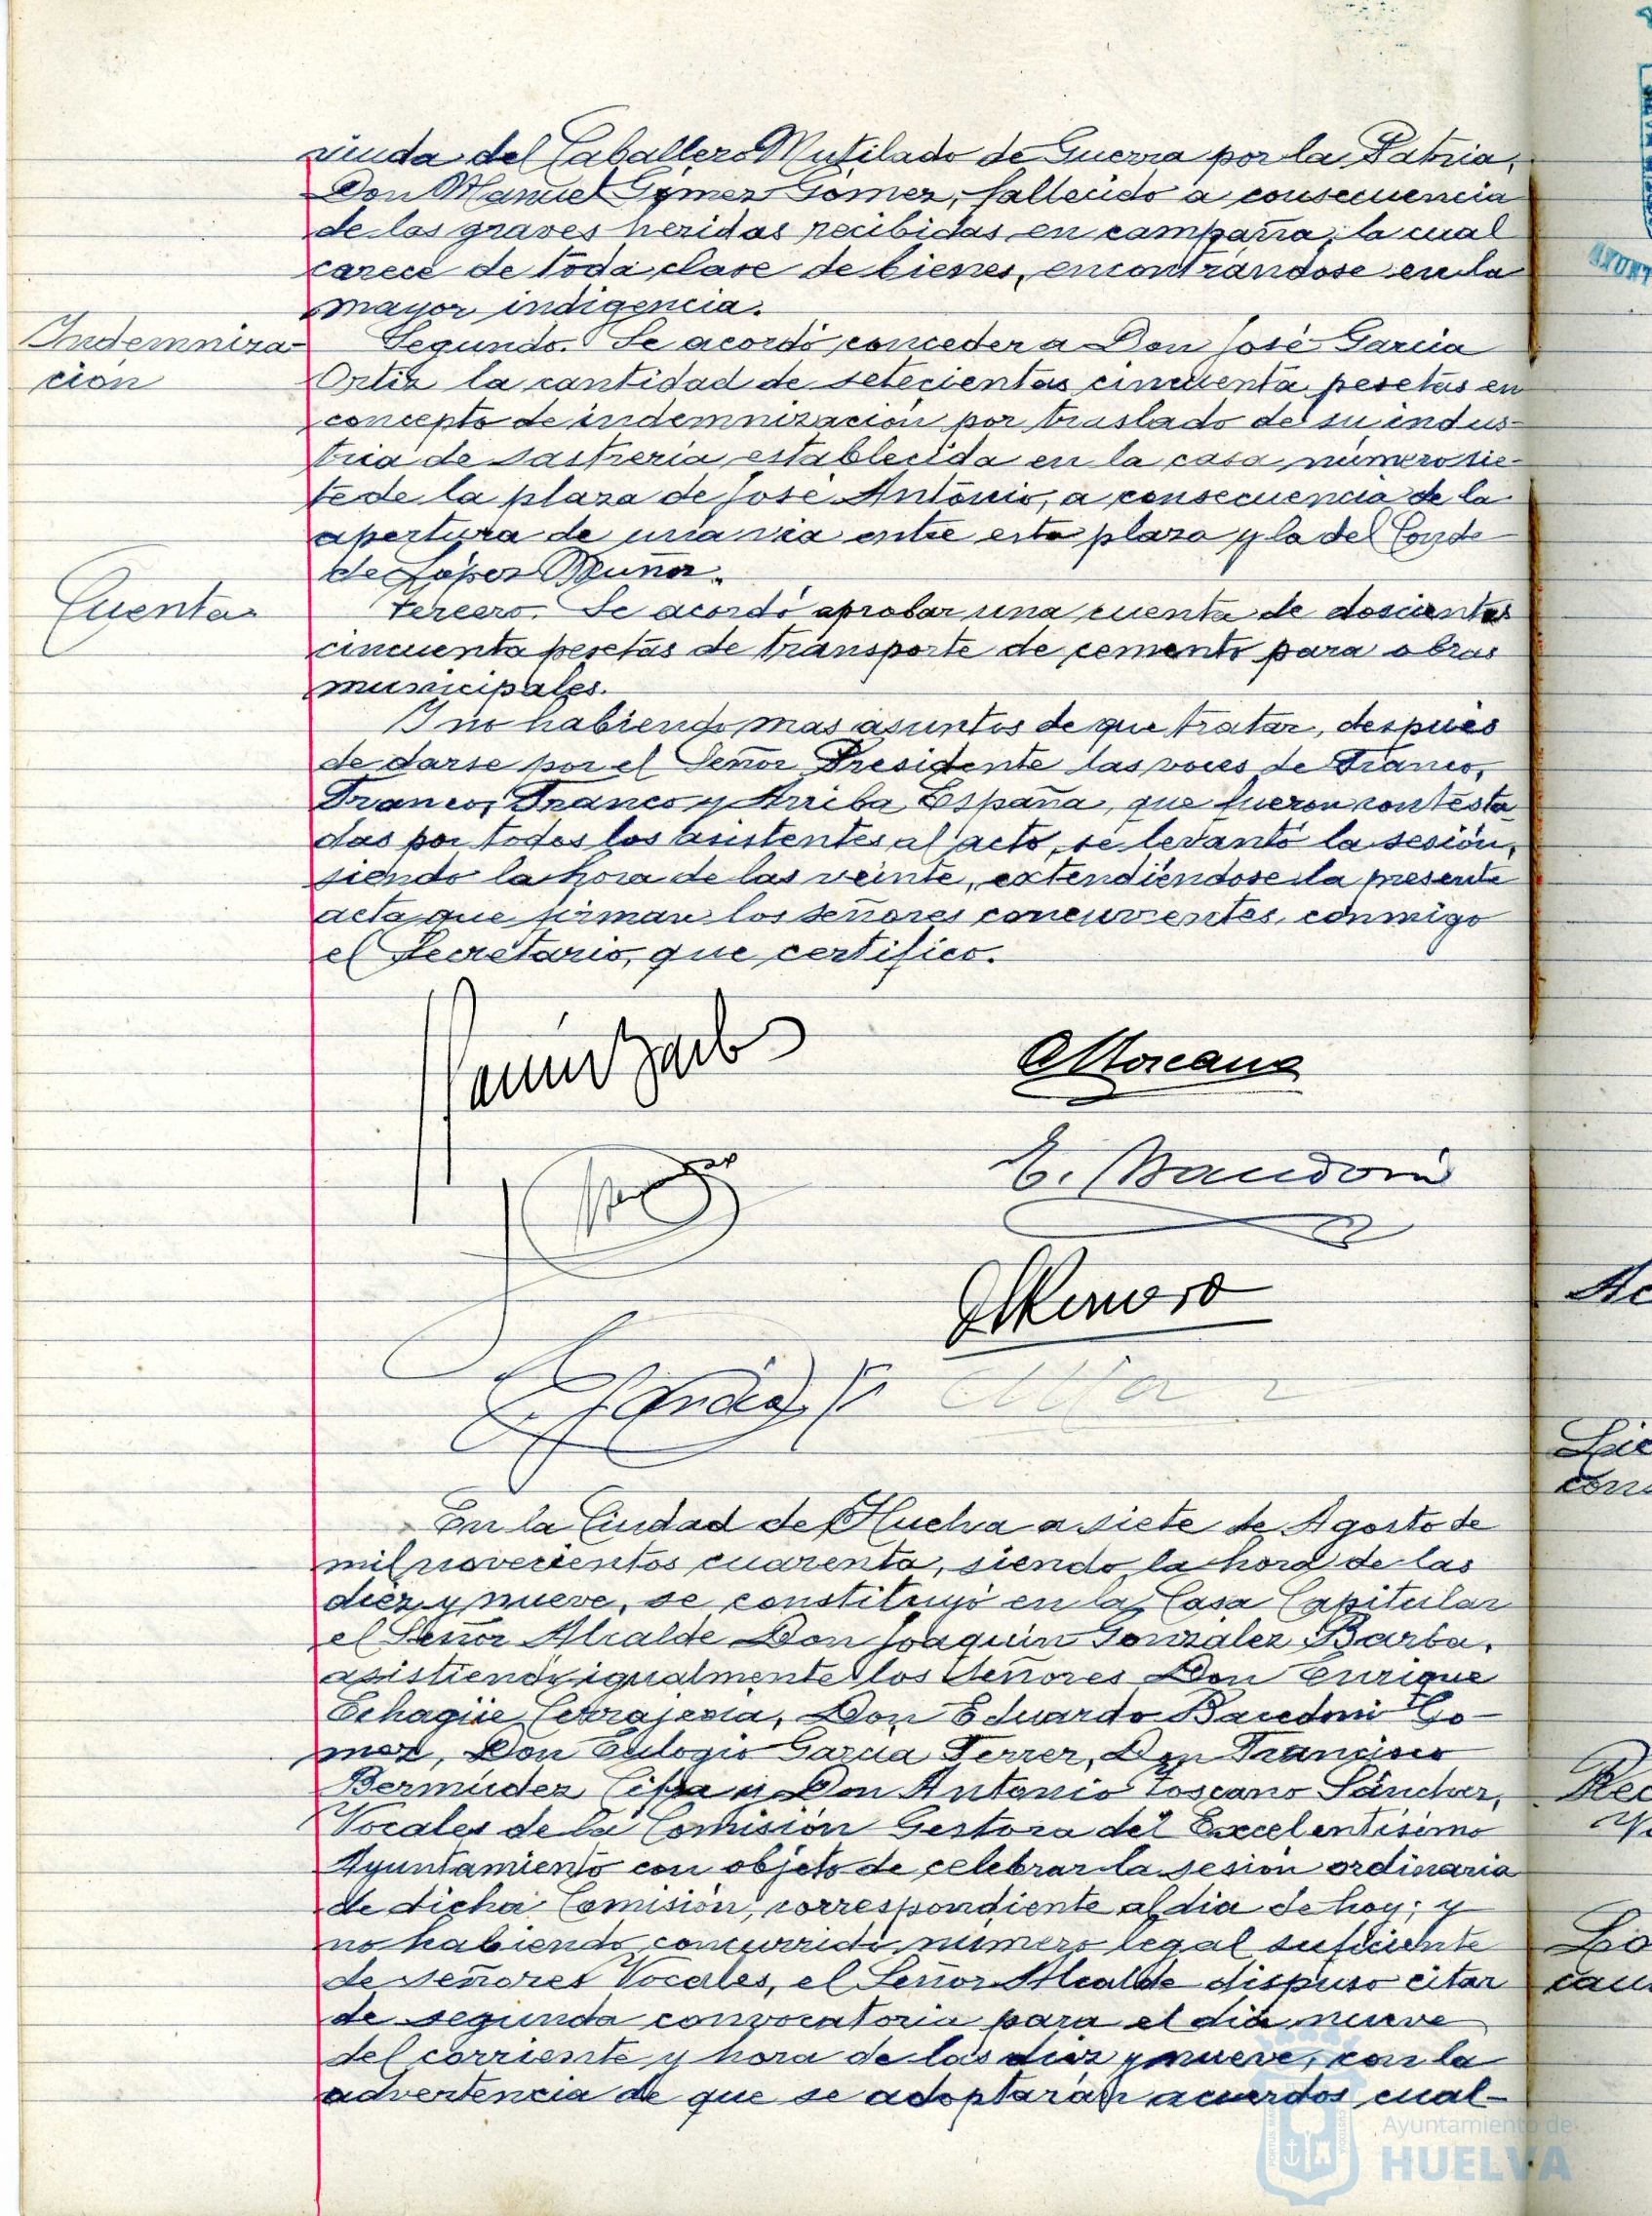 viuda del Caballero Mutilado de Guerra por la Patria,
Don Manuel Gómez Gómez, fallecido a consecuencia
de las graves heridas recibidas en campaña, la cual
carece de toda clase de bienes, encontrándose en la
mayor indigencia.
Indemniza-
ción
Segundo. Se acordó conceder a Don José García
Ortiz la cantidad de setecientas cincuenta pesetas en
concepto de indemnización por traslado de su indus-
tria de sastrería establecida en la casa número sie-
te de la plaza de José Antonio, a consecuencia de la
apertura de una vía entre esta plaza y la del Conde
de López Muñoz.
Cuentas
Tercero. Se acordó aprobar una cuenta de doscientas
cincuenta pesetas de transporte de cemento para obras
municipales.
Y no habiendo mas asuntos de que tratar, después
de darse por el Señor Presidente las voces de Franco,
Franco, Franco y Arriba España, que fueron contesta
das por todos los asistentes al acto, se levantó la sesión,
siendo la hora de las veinte, extendiéndose la presente
acta que firman los señores concurrentes, conmigo
el Secretario, que certifico.
A Toscano
E. Baudoni
En la Ciudad de Huelva a siete de Agosto de
mil novecientos cuarenta, siendo la hora de las
diez y nueve, se constituyó en la Casa Capitular
el Señor Alcalde Don Joaquín González Barba,
asistiendo igualmente los Señores Don Enrique
Echagüe Don Eduardo Baudoni Gó-
mez, Don Eulogio García Ferrer, Don Francisco
Bermúdez y Don Antonio Toscano Sánchez,
Vocales de la Comisión Gestora del Excelentísimo
Ayuntamiento con objeto de celebrar la sesión ordinaria
de dicha Comisión, correspondiente al dia de hoy; y
no habiendo concurrido número legal suficiente
de señores Vocales, el Señor Alcalde dispuso citar
de segunda convocatoria para el día nueve
del corriente y hora de las diez y nueve, con la
advertencia de que se adoptarán acuerdos cual-
Ayuntamiento de
HUELVA